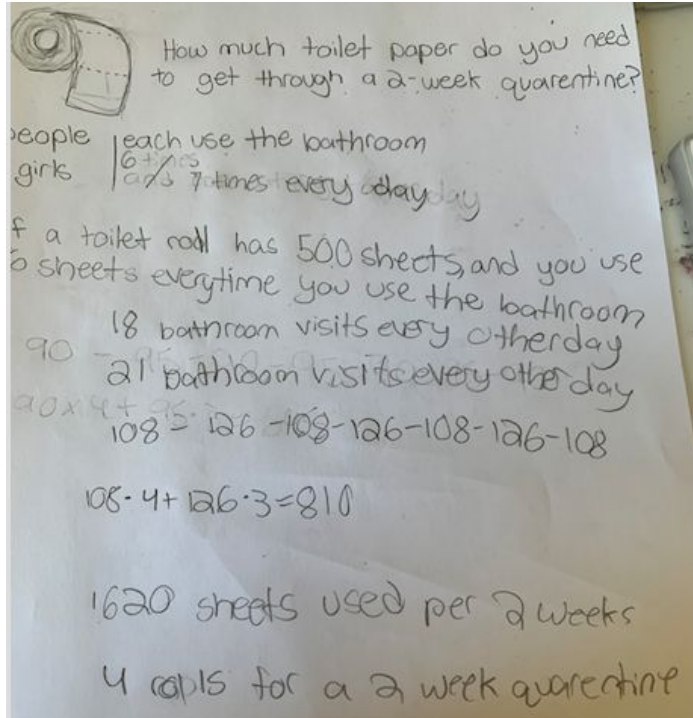 How much toilet paper do you need
to get through a 2-week quarentine?
people each use the bathroom
girls 6/7 times every day
f a toilet roll has 500 sheets, and you use
6 sheets everytime you use the bathroom
18 bathroom visits every otherday
90
21 bathroom visits every other day
90x4+95
108-126-108-126-108-126-108
108·4+126·3=810
1620 sheets used per 2 weeks
4 rolls for a 2 week quarentine